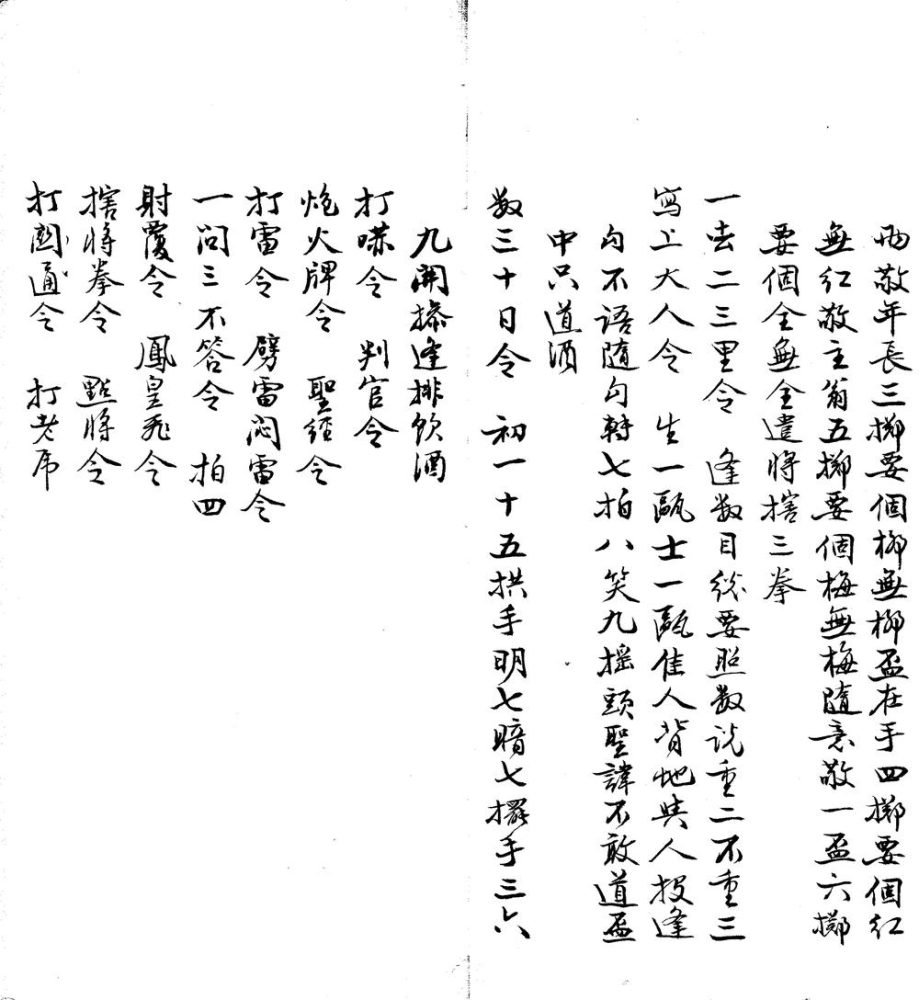 兩敬年長三擲要個柳無柳盃在手四擲要個紅
無紅敬主翁五擲要個梅無梅隨意敬一盃六擲
要個全無全遣將搳三拳
一去二三里令　逢数目總要照数说重二不重三
寫上大人令　生一甌士一甌佳人背地與人投逢
勾不语随勾轉七拍八笑九摇頭聖諱不敢道盃
中只道酒
数三十日令　初一十五拱手明七暗七擺手三六
九開搽逢排飲酒
打嗏令　判官令
炮火牌令　聖經令
打雷令　劈雷闷雷令
一问三不答令　拍四
射覆令　鳳皇飛令
搳将拳令　點將令
打関通令　打老虎